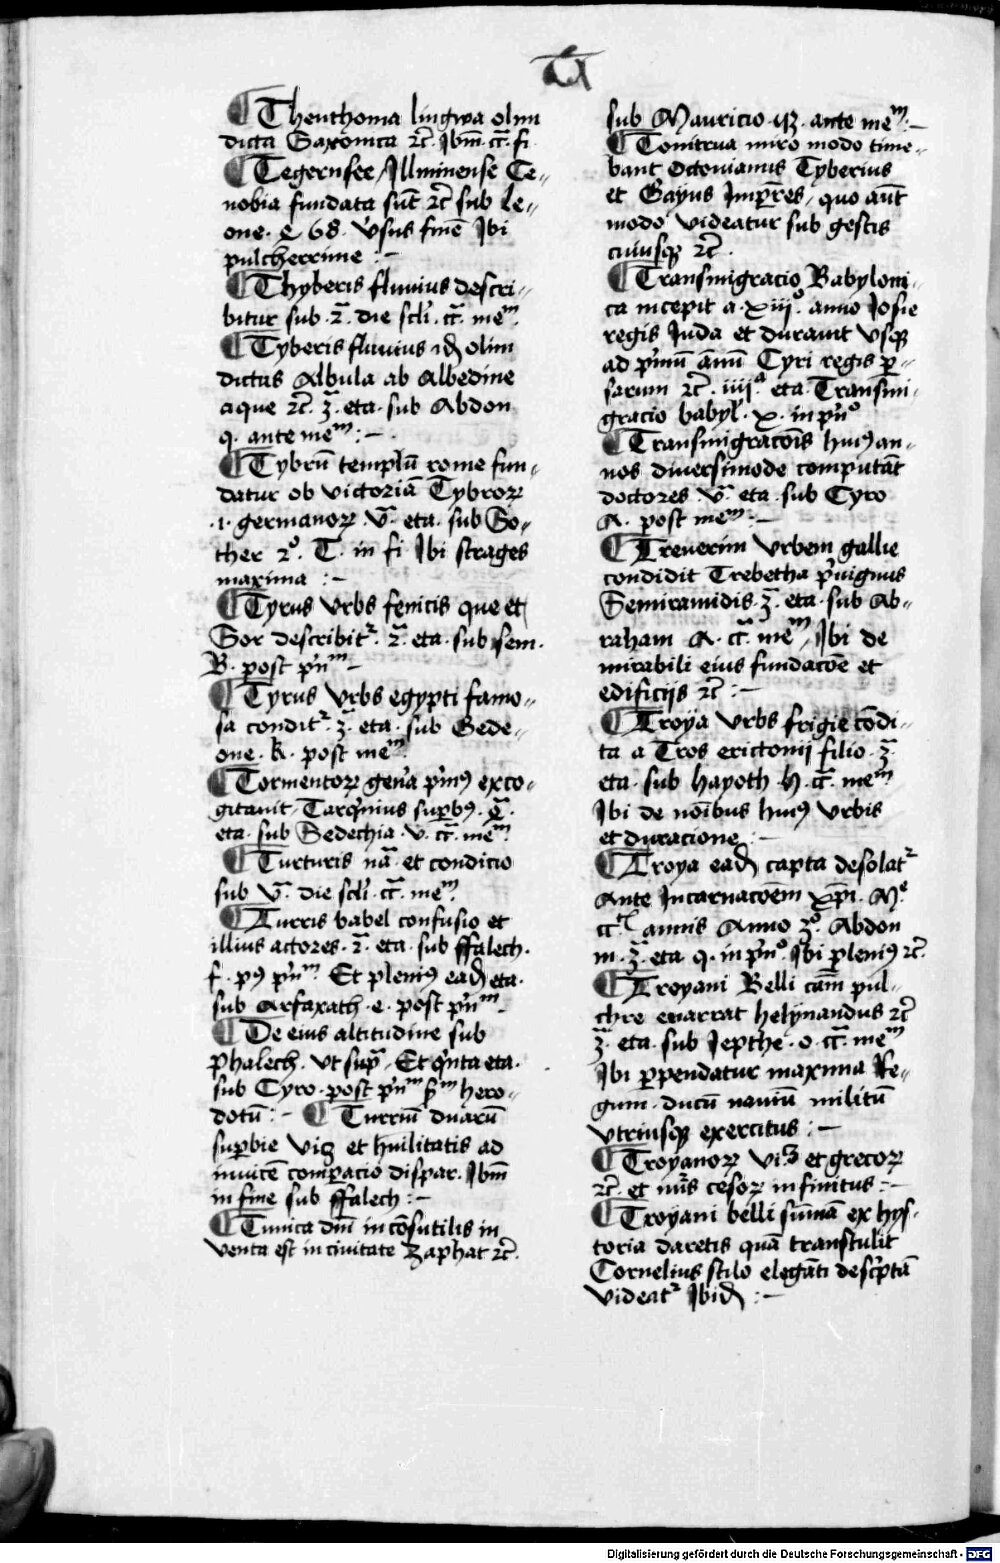 T
¶ Thenthonia lingwa olim
dicta Saxonica ⁊c̄ Ibm̄ cᵃ fi
¶ Tegernsee / Illminense Ce-
nobia fundata sūt ⁊c̄ sub Le-
one · 68 · v̓sus finē Ibi
pulcherrime :-
¶ Thyberis fluvius descri-
bitur sub · 2ᵃ · die scl̓i · cᵃ · meᵐ
¶ Tyberis fluvius id̄ olim
dictus Albula ab Albedine
aque ⁊c̄ · 3ᵃ · eta · sub Abdon
q · ante meᵐ :-
¶ Tybrū templū rome fun-
datur ob victoriā Tybroꝝ
· i · germanoꝝ vᵃ · eta · sub So-
ther 2º · T · in fi Ibi strages
maxima :-
¶ Tyrus vrbs fenicis que et
Sor describitᷣ · 2ᵃ · eta · sub sem ·
B · post pᷣnᵐ -
¶ Tyrus vrbs egypti famo-
sa conditᷣ · 3ᵃ · eta · sub Gede-
one · k · post meᵐ
¶ Tormentoꝝ gen̓a p̓mꝰ exco-
gitavit Tarqᷣnius suꝑbꝰ ·
eta · sub Sedechia · v · cᵃ · meᵐ
¶ Turturis nᵃ · et condicio
sub vᵃ · die scl̓i · cᵃ · meᵐ
¶ Turris babel confusio et
illius actores · 2ᵃ · eta · sub ffalech ·
f · pꝰ pᷣnᵐ · Et pleniꝰ ead̄ eta ·
sub Arfaxath · e · post pᷣnᵐ
¶ De eius altitudine sub
Phalech · vt supᵃ · Et qᷣnta eta ·
sub Cyro · post pᷣnᵐ hero-
dotū :- ¶ Turriū duarū
suꝑbie vicꝫ et huīlitatis ad
invicē comꝑacio dispar · Ibm̄
in fine sub ffalech :-
¶ Tunica dn̄i incōsutilis in
venta est in civitate Zaphat ⁊c̄
sub Mauricio · ante meᵐ :-
¶ Tonitrua miro modo time-
bant Octovianus Tyberius
et Gayus Imꝑres / quo aūt
modo videatur sub gestis
cuiusqꝫ ⁊c̄
¶ Transmigracio Babyloni-
ca incepit a · xiijº · anno Josie
regis Juda et duravit vsqꝫ
ad p̓mū ānū Cyri regis ꝑ-
sarum ⁊c̄ · iiijᵃ · eta · Transmi-
gracio babyl̓ · x · in pᷣnº
¶ Transmigracōis huiꝰ an-
nos diversimode computāt
doctores vᵃ · eta · sub Cyro
A · post meᵐ :-
¶ Treverim vrbem gallie
condidit Trebetha p̓vignus
Semiramidis · 3ᵃ · eta · sub Ab-
raham A · cᵃ · meᵐ / Ibi de
mirabili eius fundacōe et
edificijs ⁊c̄ :-
¶ Troya vrbs frigie cōdi-
ta a Tros erictonij filio · 3ᵃ
eta · sub hayoth · h · cᵃ · meᵐ
Ibi de noībus huiꝰ vrbis
et duracione :-
¶ Troya ead̄ capta desolatᷣ
Ante Incarnacōem xp̄i · Mᵉ
annis Anno 3º · Abdon
in · 3ᵃ · eta · q · in pᷣnº · Ibi ꝑleniꝰ ⁊c̄
¶ Troyani Belli cām pul-
chre enarrat helynandus ⁊c̄
3ᵃ · eta · sub Iepthe · o · cᵃ · meᵐ
Ibi ꝑpendatur maxima Re-
gum · ducū naviū militū
vtriusqꝫ exercitus :-
¶ Troyanoꝝ vicꝫ et grecoꝝ
⁊c̄ · et nūs cesoꝝ infinitus :-
¶ Troyani belli sūmā ex hys-
toria daretis quā transtulit
Cornelius stilo elegāti descp̓tā
videatᷣ Ibid̄ :-
Digitalisierung gefördert durch die Deutsche Forschungsgemeinschaft - DFG